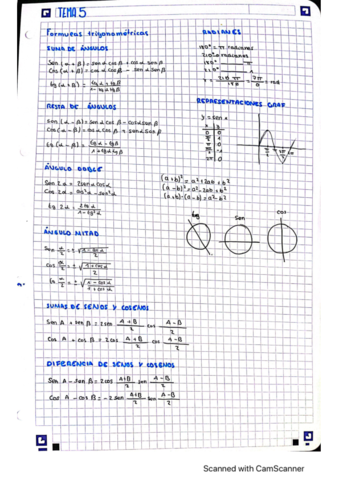 TEMA 5
Formulas trigonométricas
SUMA DE ÁNGULOS
Sen (α + β) = sen α cos β + cos α sen β
Cos (α + β) = cos α cos β - sen α sen β
tg (α + β) =
RESTA DE ÁNGULOS
sen (α - β) = sen α cos β - cos α sen β
Cos (α - β) = cos α cos β + sen α sen β
tg (α - β) = tg α - tg β / 1 + tg α tg β
ÁNGULO DOBLE
Sen 2α = 2 sen α cos α
Cos 2α = cos² α - sen² α
tg 2α = 2 tg α / 1 - tg² α
ÁNGULO MITAD
Sen α/2 = ± √ 1 - cos α / 2
cos α/2 = ± √ 1 + cos α / 2
tg α/2 = ± √ 1 - cos α / 1 + cos α
SUMAS DE SENOS Y COSENOS
Sen A + sen B = 2 sen A + B / 2 cos A - B / 2
Cos A + cos B = 2 cos A + B / 2 cos A - B / 2
DIFERENCIA DE SENOS Y COSENOS
Sen A - sen B = 2 cos A+B / 2 sen A - B / 2
Cos A - cos B = -2 sen A+B / 2 sen A - B / 2
RADIANES
180° = π radianes
210° x radianes
180° π
210° x
x = 210 π / 180 = 7π / 6 rad
REPRESENTACIONES GRAF.
y = sen x
x y
(a + b)² = a² + 2ab + b²
(a - b)² = a² - 2ab + b²
(a + b)·(a - b) = a² - b²
tg sen cos
Scanned with CamScanner